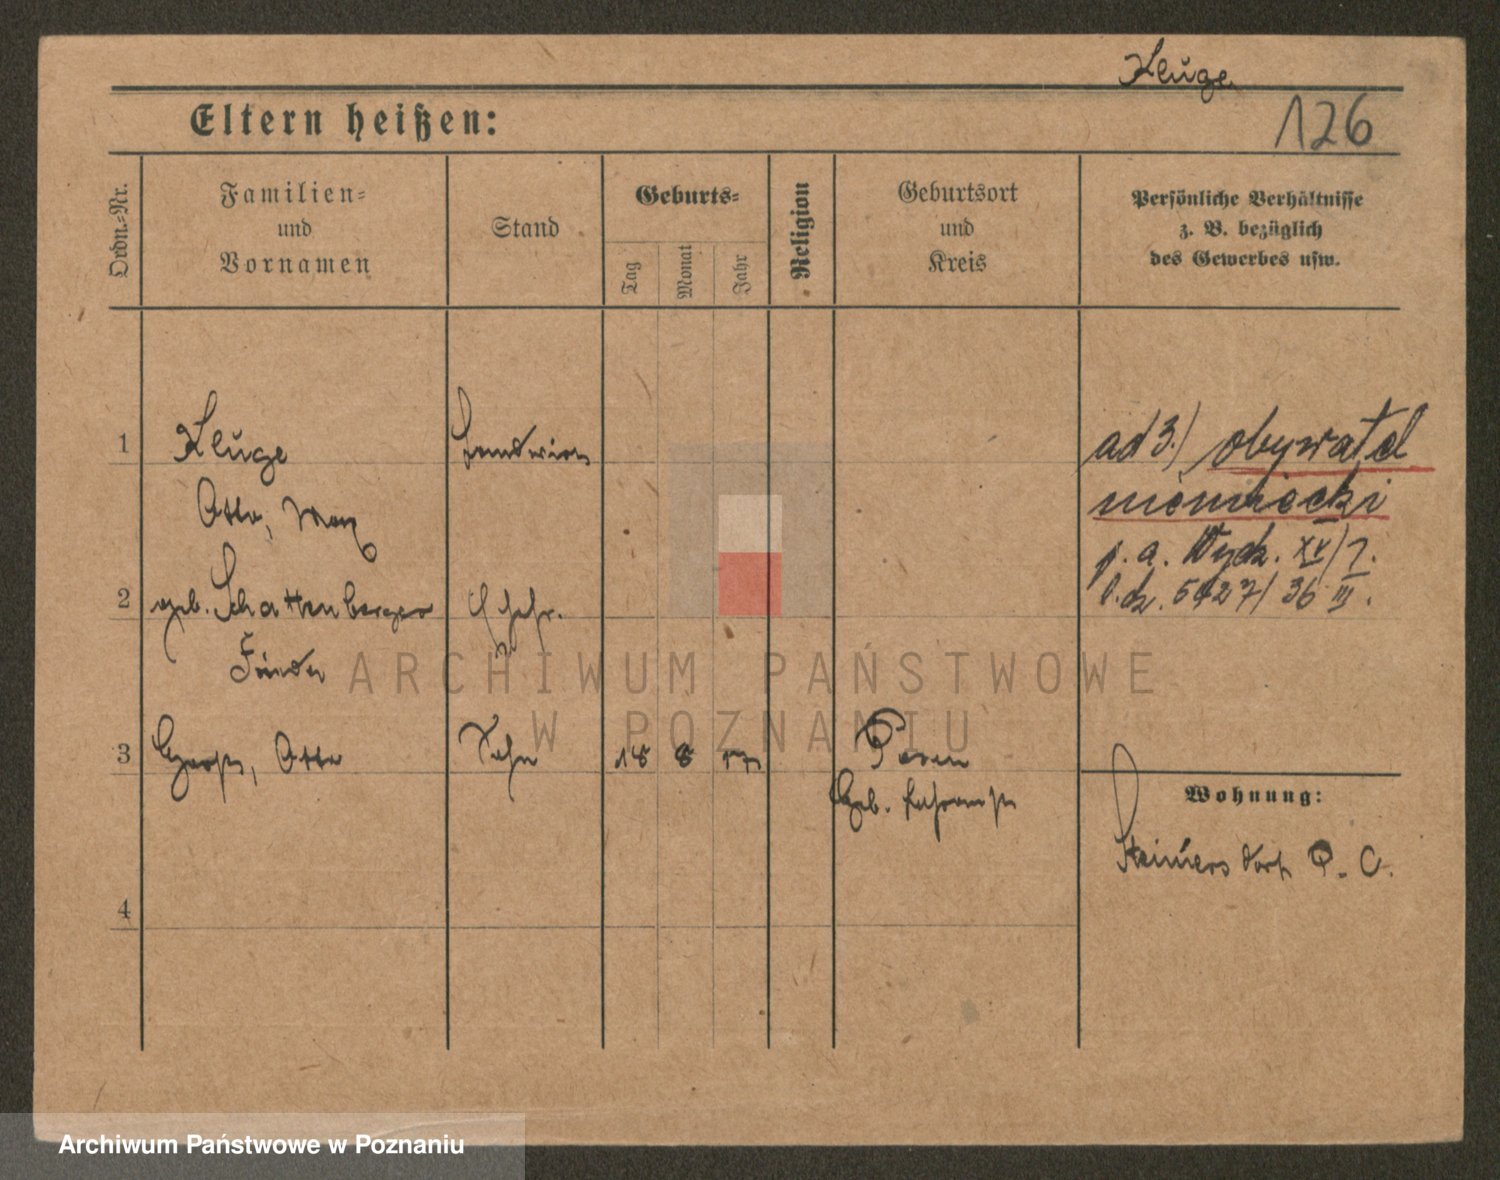 Kluge
Eltern heißen:
126
Ordn.-Nr.
Familien-
und
Vornamen
Stand
Geburts-
Tag
Monat
Jahr
Religion
Geburtsort
und
Kreis
Persönliche Verhältnisse
z. B. bezüglich
des Gewerbes usw.
1
Kluge
Landwirt
Otto, Max
2
geb. Schattenberger
Ehefr.
3
Otto
Sohn
18
8
17
Posen
4
ad 3./ obywatel
niemiecki
p. a. Wydz. XV/I.
l. dz. 5427/36 III.
Wohnung:
Steimersdorf P. O.
ARCHIWUM PAŃSTWOWE
W POZNANIU
Archiwum Państwowe w Poznaniu